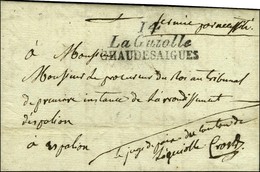 14
La Guiolle
CHAUDESAIGUES
à Monsieur
Monsieur le procureur du Roi au tribunal
de premiere instance de larrondissement
d'espalion
à Espalion
Le juge de paix du canton de
Laguiolle